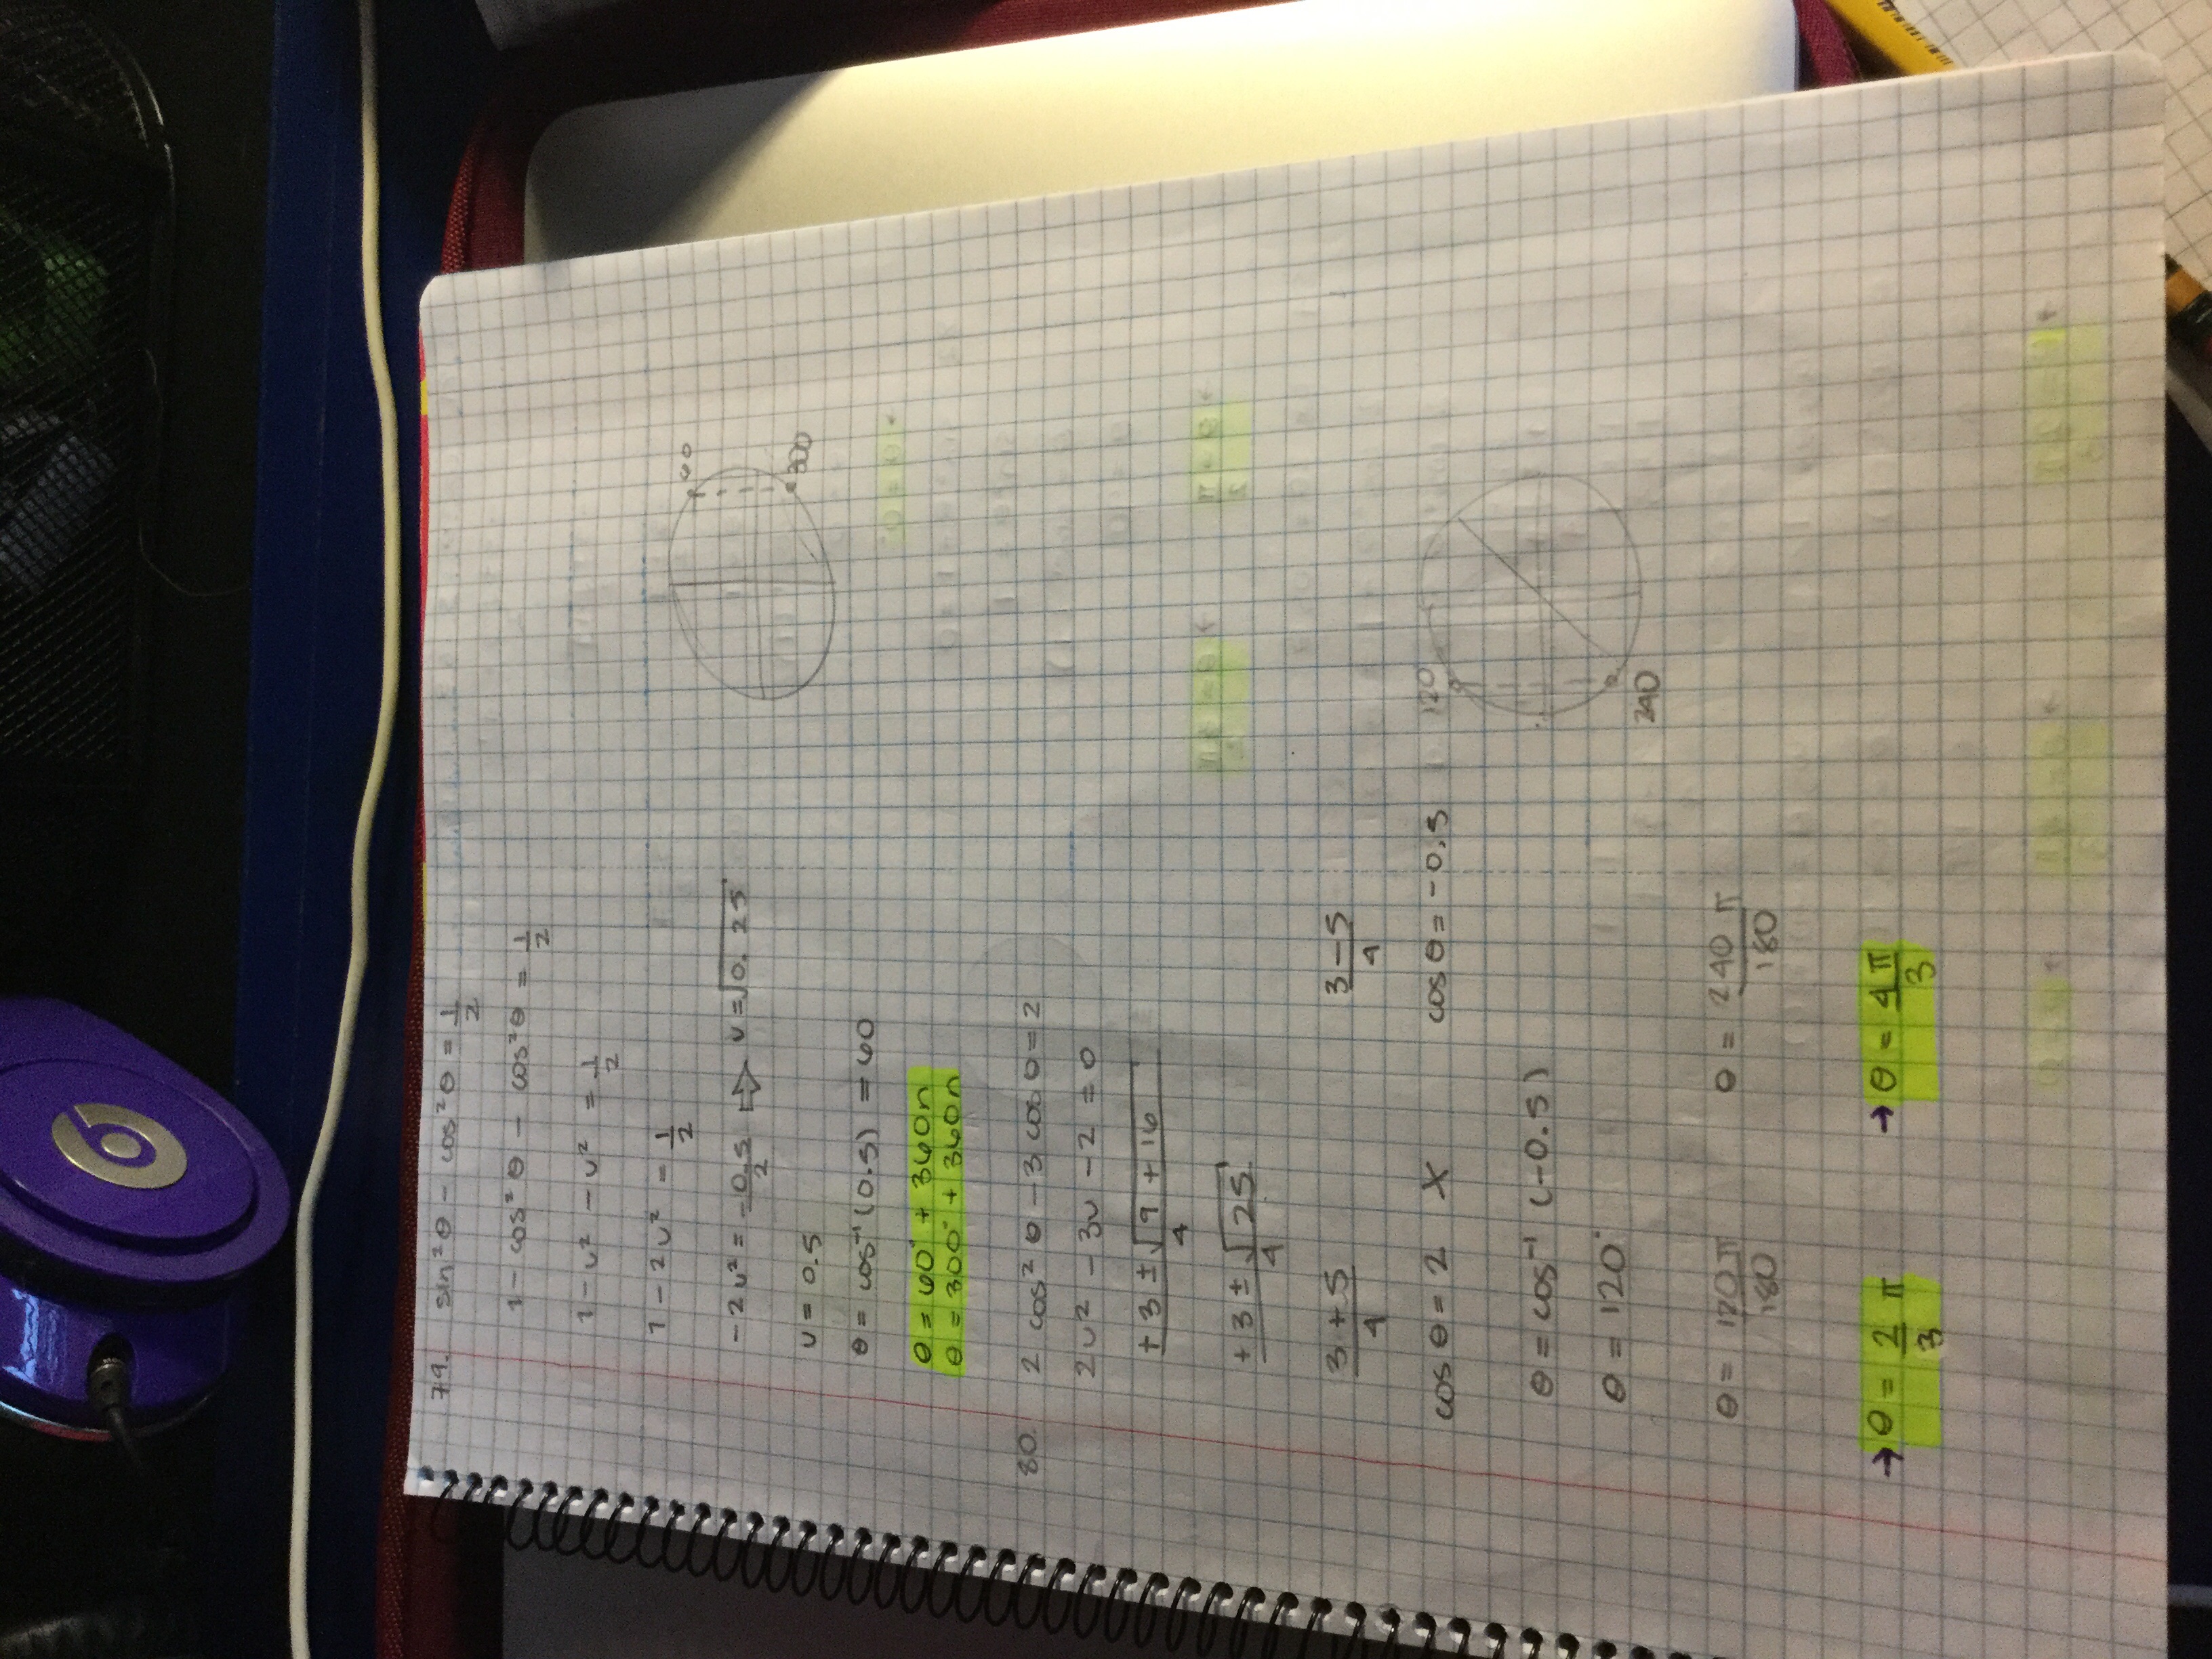 79. sin²θ - cos²θ = 1/2
1 - cos²θ - cos²θ = 1/2
1 - u² - u² = 1/2
1 - 2u² = 1/2
-2u² = -0.5/2 ⇒ u = √0.25
u = 0.5
θ = cos⁻¹(0.5) = 60
θ = 60° + 360n
θ = 300° + 360n
60
300
80. 2 cos²θ - 3 cos θ = 2
2u² - 3u - 2 = 0
+3 ± √9 + 16 / 4
+3 ± √25 / 4
3 + 5 / 4
3 - 5 / 4
cos θ = 2 X
cos θ = -0.5
120
240
θ = cos⁻¹(-0.5)
θ = 120°
θ = 120π / 180
θ = 240π / 180
→ θ = 2/3 π
→ θ = 4π/3